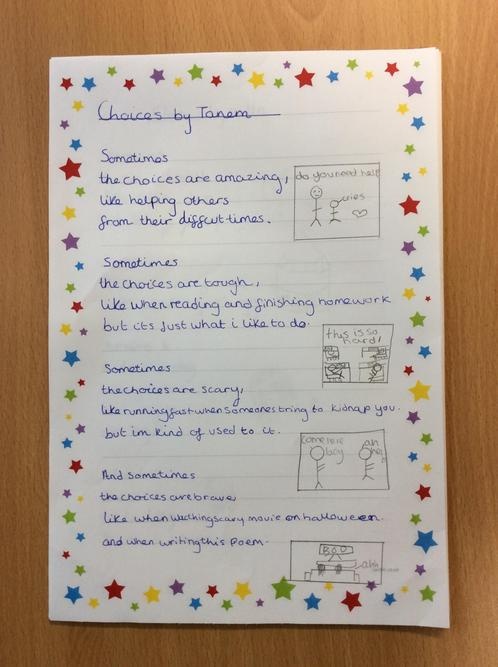 Choices by Tanem
Sometimes
the choices are amazing,
like helping others
from their diffcut times.
do you need help
cries
Sometimes
the choices are tough,
like when reading and finishing homework
but its Just what i like to do.
this is so
hard!
Sometimes
the choices are scary,
like running fast when someones tring to kidnap you.
but im kind of used to it.
come here
boy
ah
help
And sometimes
the choices are brave,
like when wacthing scary movie on halloween.
and when writing this poem.
BOO
ahh